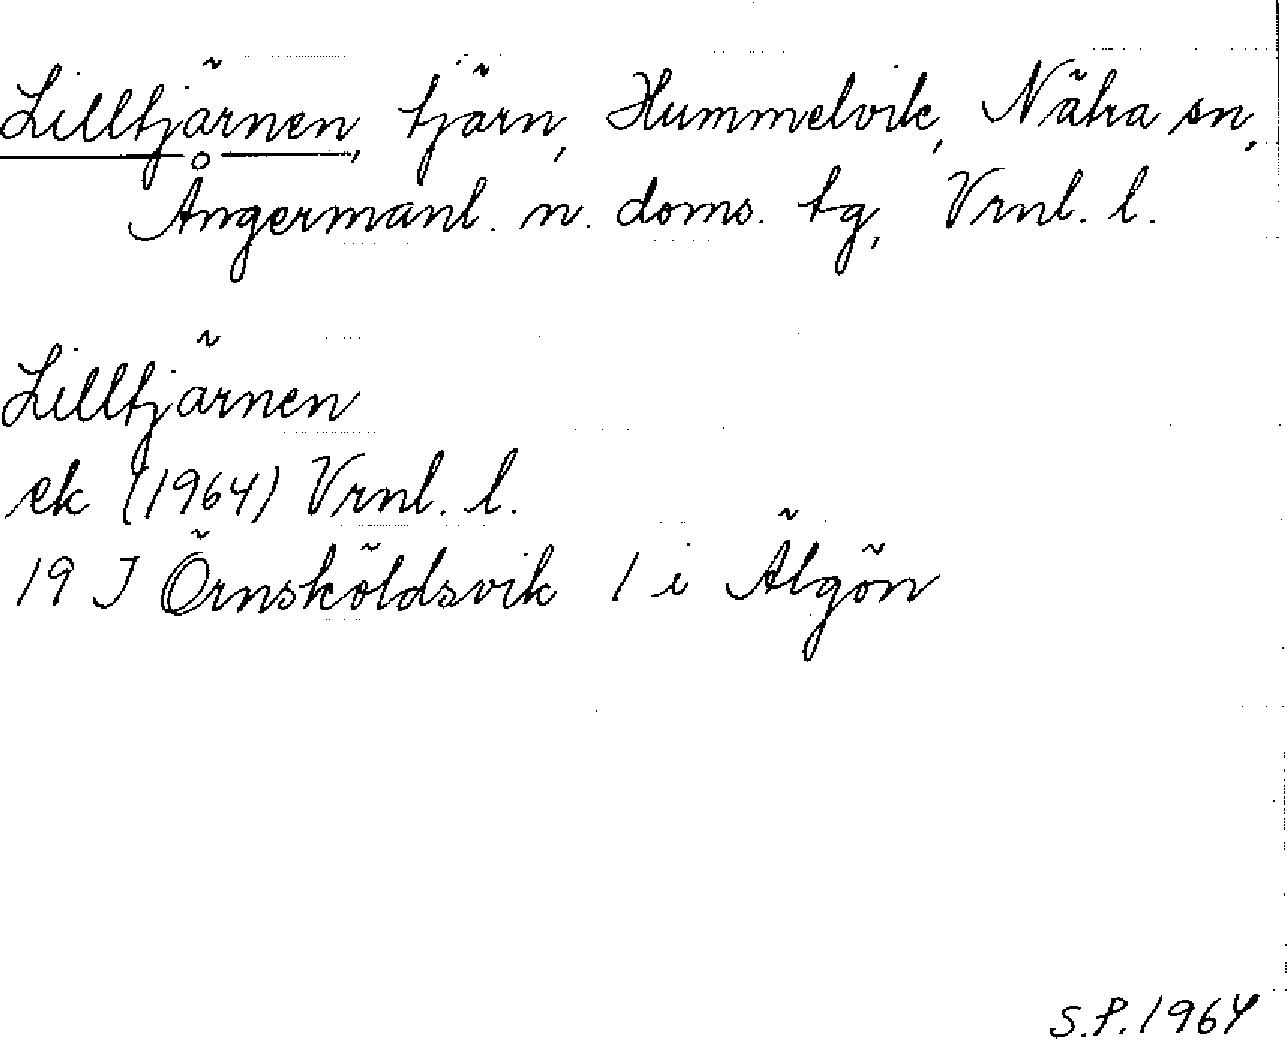 Lilltjärnen, tjärn, Hummelvik, Nätra sn,
Ångermanl. n. doms. tg, Vrnl. l.
Lilltjärnen
ek (1964) Vrnl. l.
19 J Örnsköldsvik 1 i Älgön
S.P. 1964